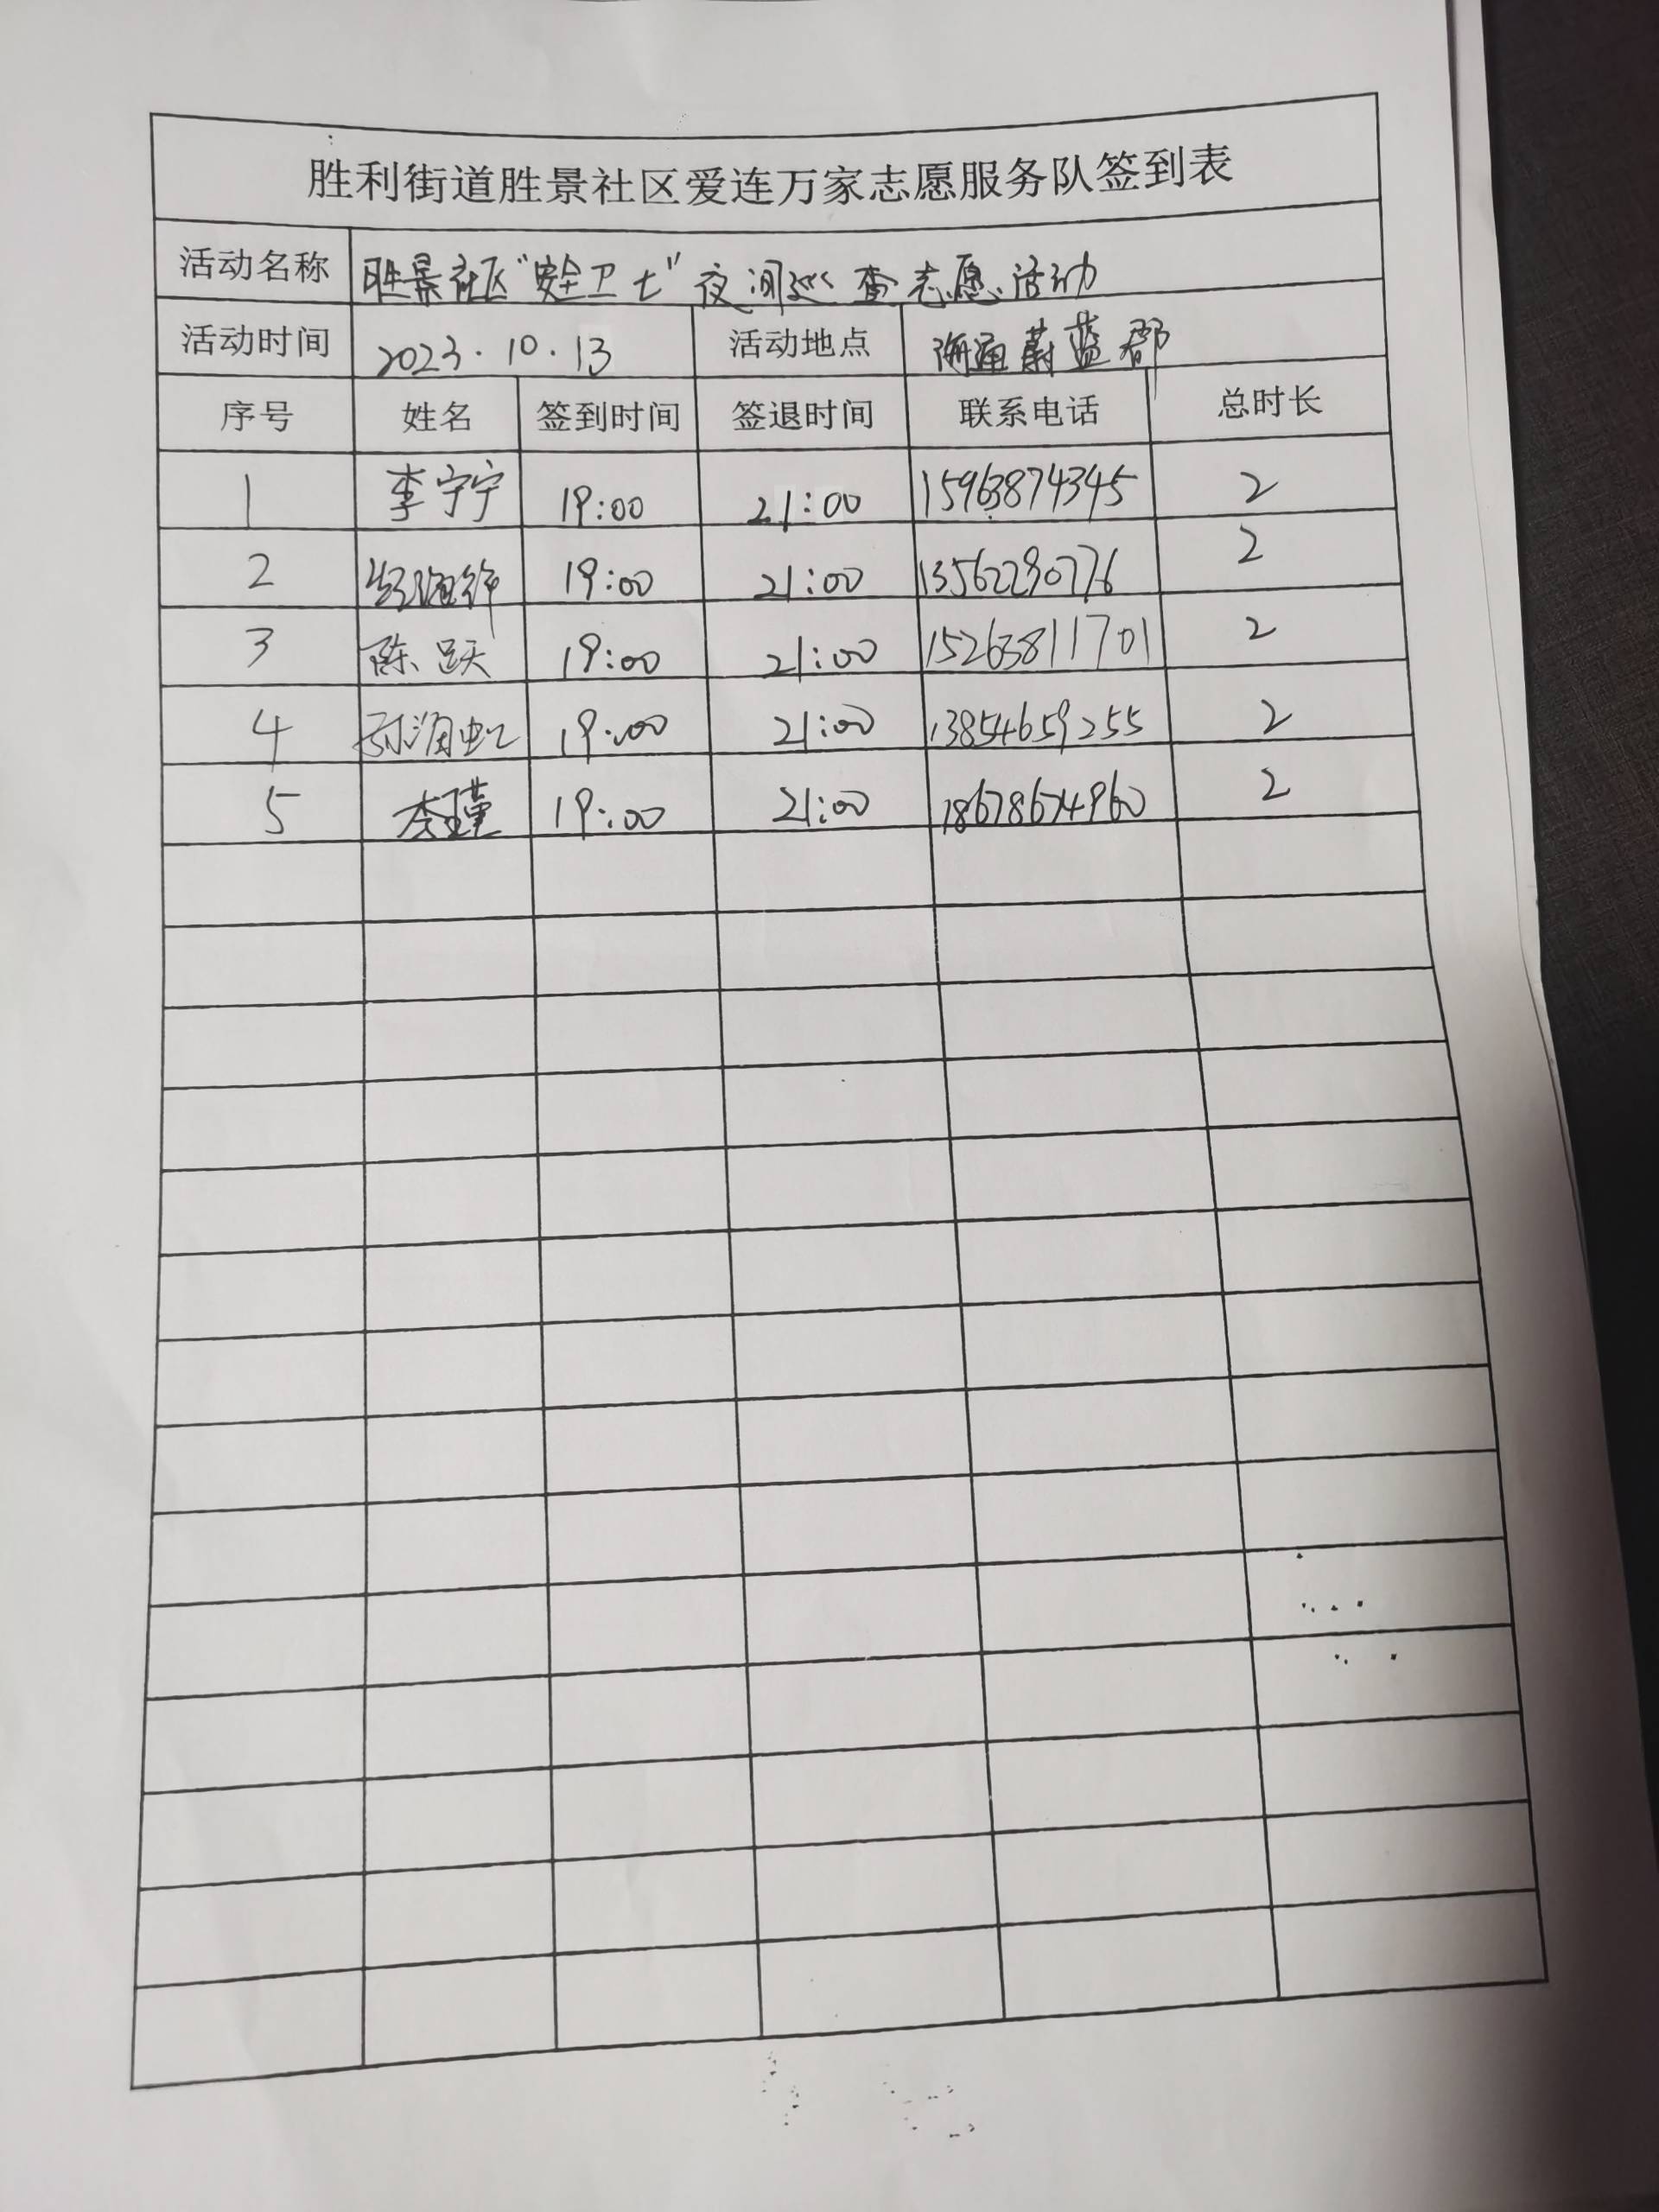 胜利街道胜景社区爱连万家志愿服务队签到表
活动名称 胜景社区“安全卫士”夜间巡查志愿活动
活动时间 2023.10.13 活动地点 海通蔚蓝郡
序号 姓名 签到时间 签退时间 联系电话 总时长
1 李宁宁 19:00 21:00 15963874345 2
2 19:00 21:00 13562290776 2
3 陈跃 19:00 21:00 15263811701 2
4 孙海虹 19:00 21:00 13854659255 2
5 李瑾 19:00 21:00 18678674960 2